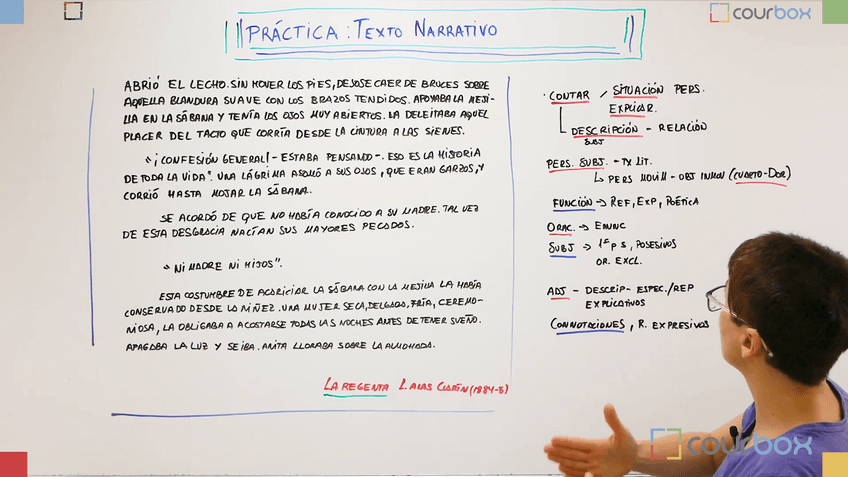 courbox
PRÁCTICA: TEXTO NARRATIVO
ABRIÓ EL LECHO. SIN MOVER LOS PIES, DEJOSE CAER DE BRUCES SOBRE
AQUELLA BLANDURA SUAVE CON LOS BRAZOS TENDIDOS. APOYABA LA MEJI-
LLA EN LA SÁBANA Y TENÍA LOS OJOS MUY ABIERTOS. LA DELEITABA AQUEL
PLACER DEL TACTO QUE CORRÍA DESDE LA CINTURA A LAS SIENES.
"¡CONFESIÓN GENERAL! - ESTABA PENSANDO -. ESO ES LA HISTORIA
DE TODA LA VIDA". UNA LÁGRIMA ASOMÓ A SUS OJOS, QUE ERAN GARZOS, Y
CORRIÓ HASTA MOJAR LA SÁBANA.
SE ACORDÓ DE QUE NO HABÍA CONOCIDO A SU MADRE. TAL VEZ
DE ESTA DESGRACIA NACÍAN SUS MAYORES PECADOS.
"NI MADRE NI HIJOS".
ESTA COSTUMBRE DE ACARICIAR LA SÁBANA CON LA MEJILLA LA HABÍA
CONSERVADO DESDE LA NIÑEZ. UNA MUJER SECA, DELGADA, FRÍA, CEREMO-
NIOSA, LA OBLIGABA A ACOSTARSE TODAS LAS NOCHES ANTES DE TENER SUEÑO.
APAGABA LA LUZ Y SE IBA. ANITA LLORABA SOBRE LA ALMOHADA.
LA REGENTA L. ALAS CLARÍN (1884-5)
· CONTAR / SITUACIÓN PERS.
EXPLICAR.
DESCRIPCIÓN - RELACIÓN
SUBJ
PERS. SUBJ. - TX LIT.
↳ PERS MOVIM - OBJ INMOV (CUARTO-DOR)
FUNCIÓN → REF, EXP, POÉTICA
ORAC. → ENUNC
SUBJ → 1ª P S, POSESIVOS
OR. EXCL.
ADJ - DESCRIP - ESPEC./REP
EXPLICATIVOS
CONNOTACIONES, R. EXPRESIVOS
courbox